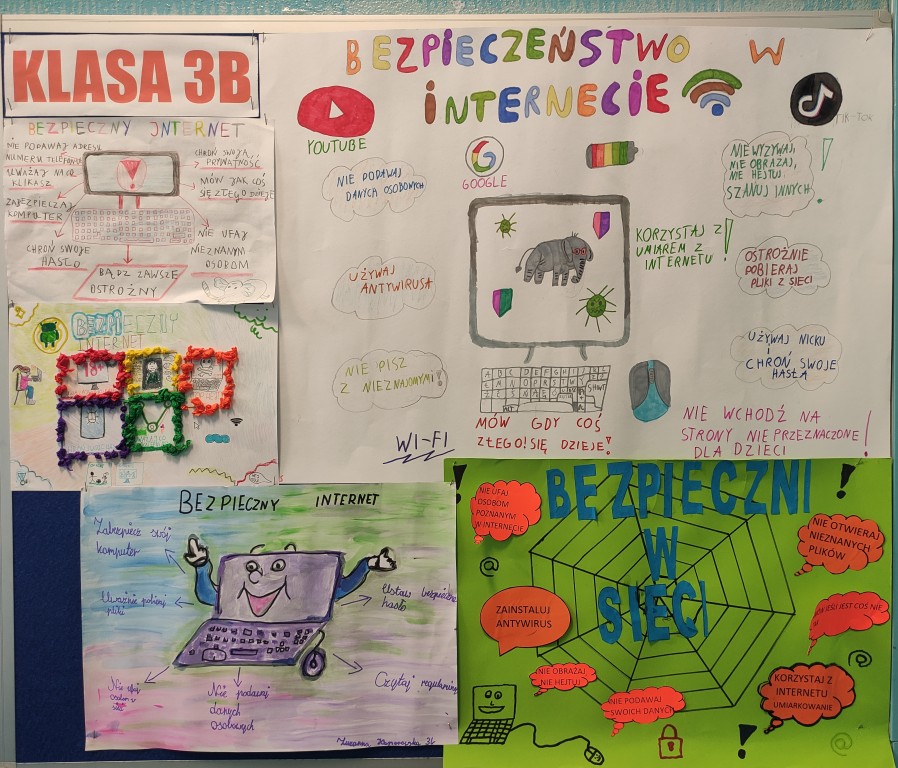 KLASA 3B
BEZPIECZNY INTERNET
NIE PODAWAJ ADRESU
NUMERU TELEFONU
UWAŻAJ NA CO
KLIKASZ
ZABEZPIECZAJ
KOMPUTER
CHROŃ SWOJE
HASŁO
CHROŃ SWOJĄ
PRYWATNOŚĆ
MÓW JAK COŚ
SIĘ ZŁEGO DZIEJE
NIE UFAJ
NIEZNANYM
OSOBOM
BĄDŹ ZAWSZE
OSTROŻNY
BEZPIECZNY
INTERNET
18+
BEZPIECZEŃSTWO W
INTERNECIE
YOUTUBE
GOOGLE
TIK-TOK
NIE PODAWAJ
DANYCH OSOBOWYCH
UŻYWAJ
ANTYWIRUSA
NIE PISZ
Z NIEZNAJOMYMI!
WI-FI
KORZYSTAJ Z
UMIAREM Z
INTERNETU!
MÓW GDY COŚ
ZŁEGO! SIĘ DZIEJE!
NIE WYZYWAJ,
NIE OBRAŻAJ,
NIE HEJTUJ
SZANUJ INNYCH!
OSTROŻNIE
POBIERAJ
PLIKI Z SIECI
UŻYWAJ NICKU
I CHROŃ SWOJE
HASŁA
NIE WCHODŹ NA
STRONY NIE PRZEZNACZONE
DLA DZIECI!
BEZPIECZNY INTERNET
Zabezpiecz swój
komputer
Uważnie pobieraj
pliki
Nie podawaj
danych
osobowych
Ustaw bezpieczne
hasło
Czytaj regulaminy
Zuzanna 3b
BEZPIECZNI
W
SIECI
NIE UFAJ
OSOBOM
POZNANYM
W INTERNECIE
@
ZAINSTALUJ
ANTYWIRUS
NIE OBRAŻAJ
NIE HEJTUJ
NIE PODAWAJ
SWOICH DANYCH
NIE OTWIERAJ
NIEZNANYCH
PLIKÓW
JEŚLI JEST COŚ NIE
@
KORZYSTAJ Z
INTERNETU
UMIARKOWANIE
@